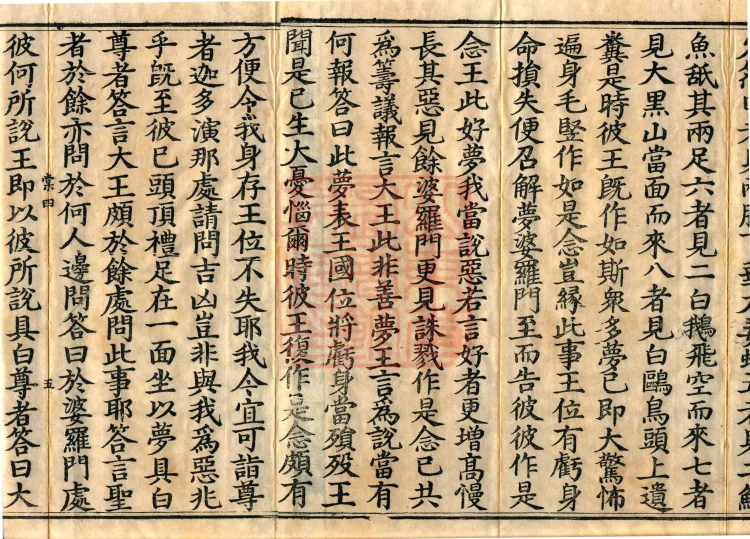 魚舐其兩足六者見二白鵝飛空而來七者
見大黑山當面而來八者見白鷗鳥頭上遺
糞是時彼王旣作如斯衆多夢已即大驚怖
遍身毛竪作如是念豈縁此事王位有虧身
命損失便召解夢婆羅門至而告彼彼作是
念王此好夢我當說惡若言好者更增高慢
長其惡見餘婆羅門更見誅戮作是念已共
爲籌議報言大王此非善夢王言爲說當有
何報答曰此夢表王國位將虧身當殞歿王
聞是已生大憂惱爾時彼王復作是念頗有
方便令我身存王位不失耶我今宜可詣尊
者迦多演那處請問吉凶豈非與我爲惡兆
乎旣至彼已頭頂禮足在一面坐以夢具白
尊者答言大王頗於餘處問此事耶答言聖
者於餘亦問於何人邊問答曰於婆羅門處
棠四 五
彼何所說王即以彼所說具白尊者答曰大